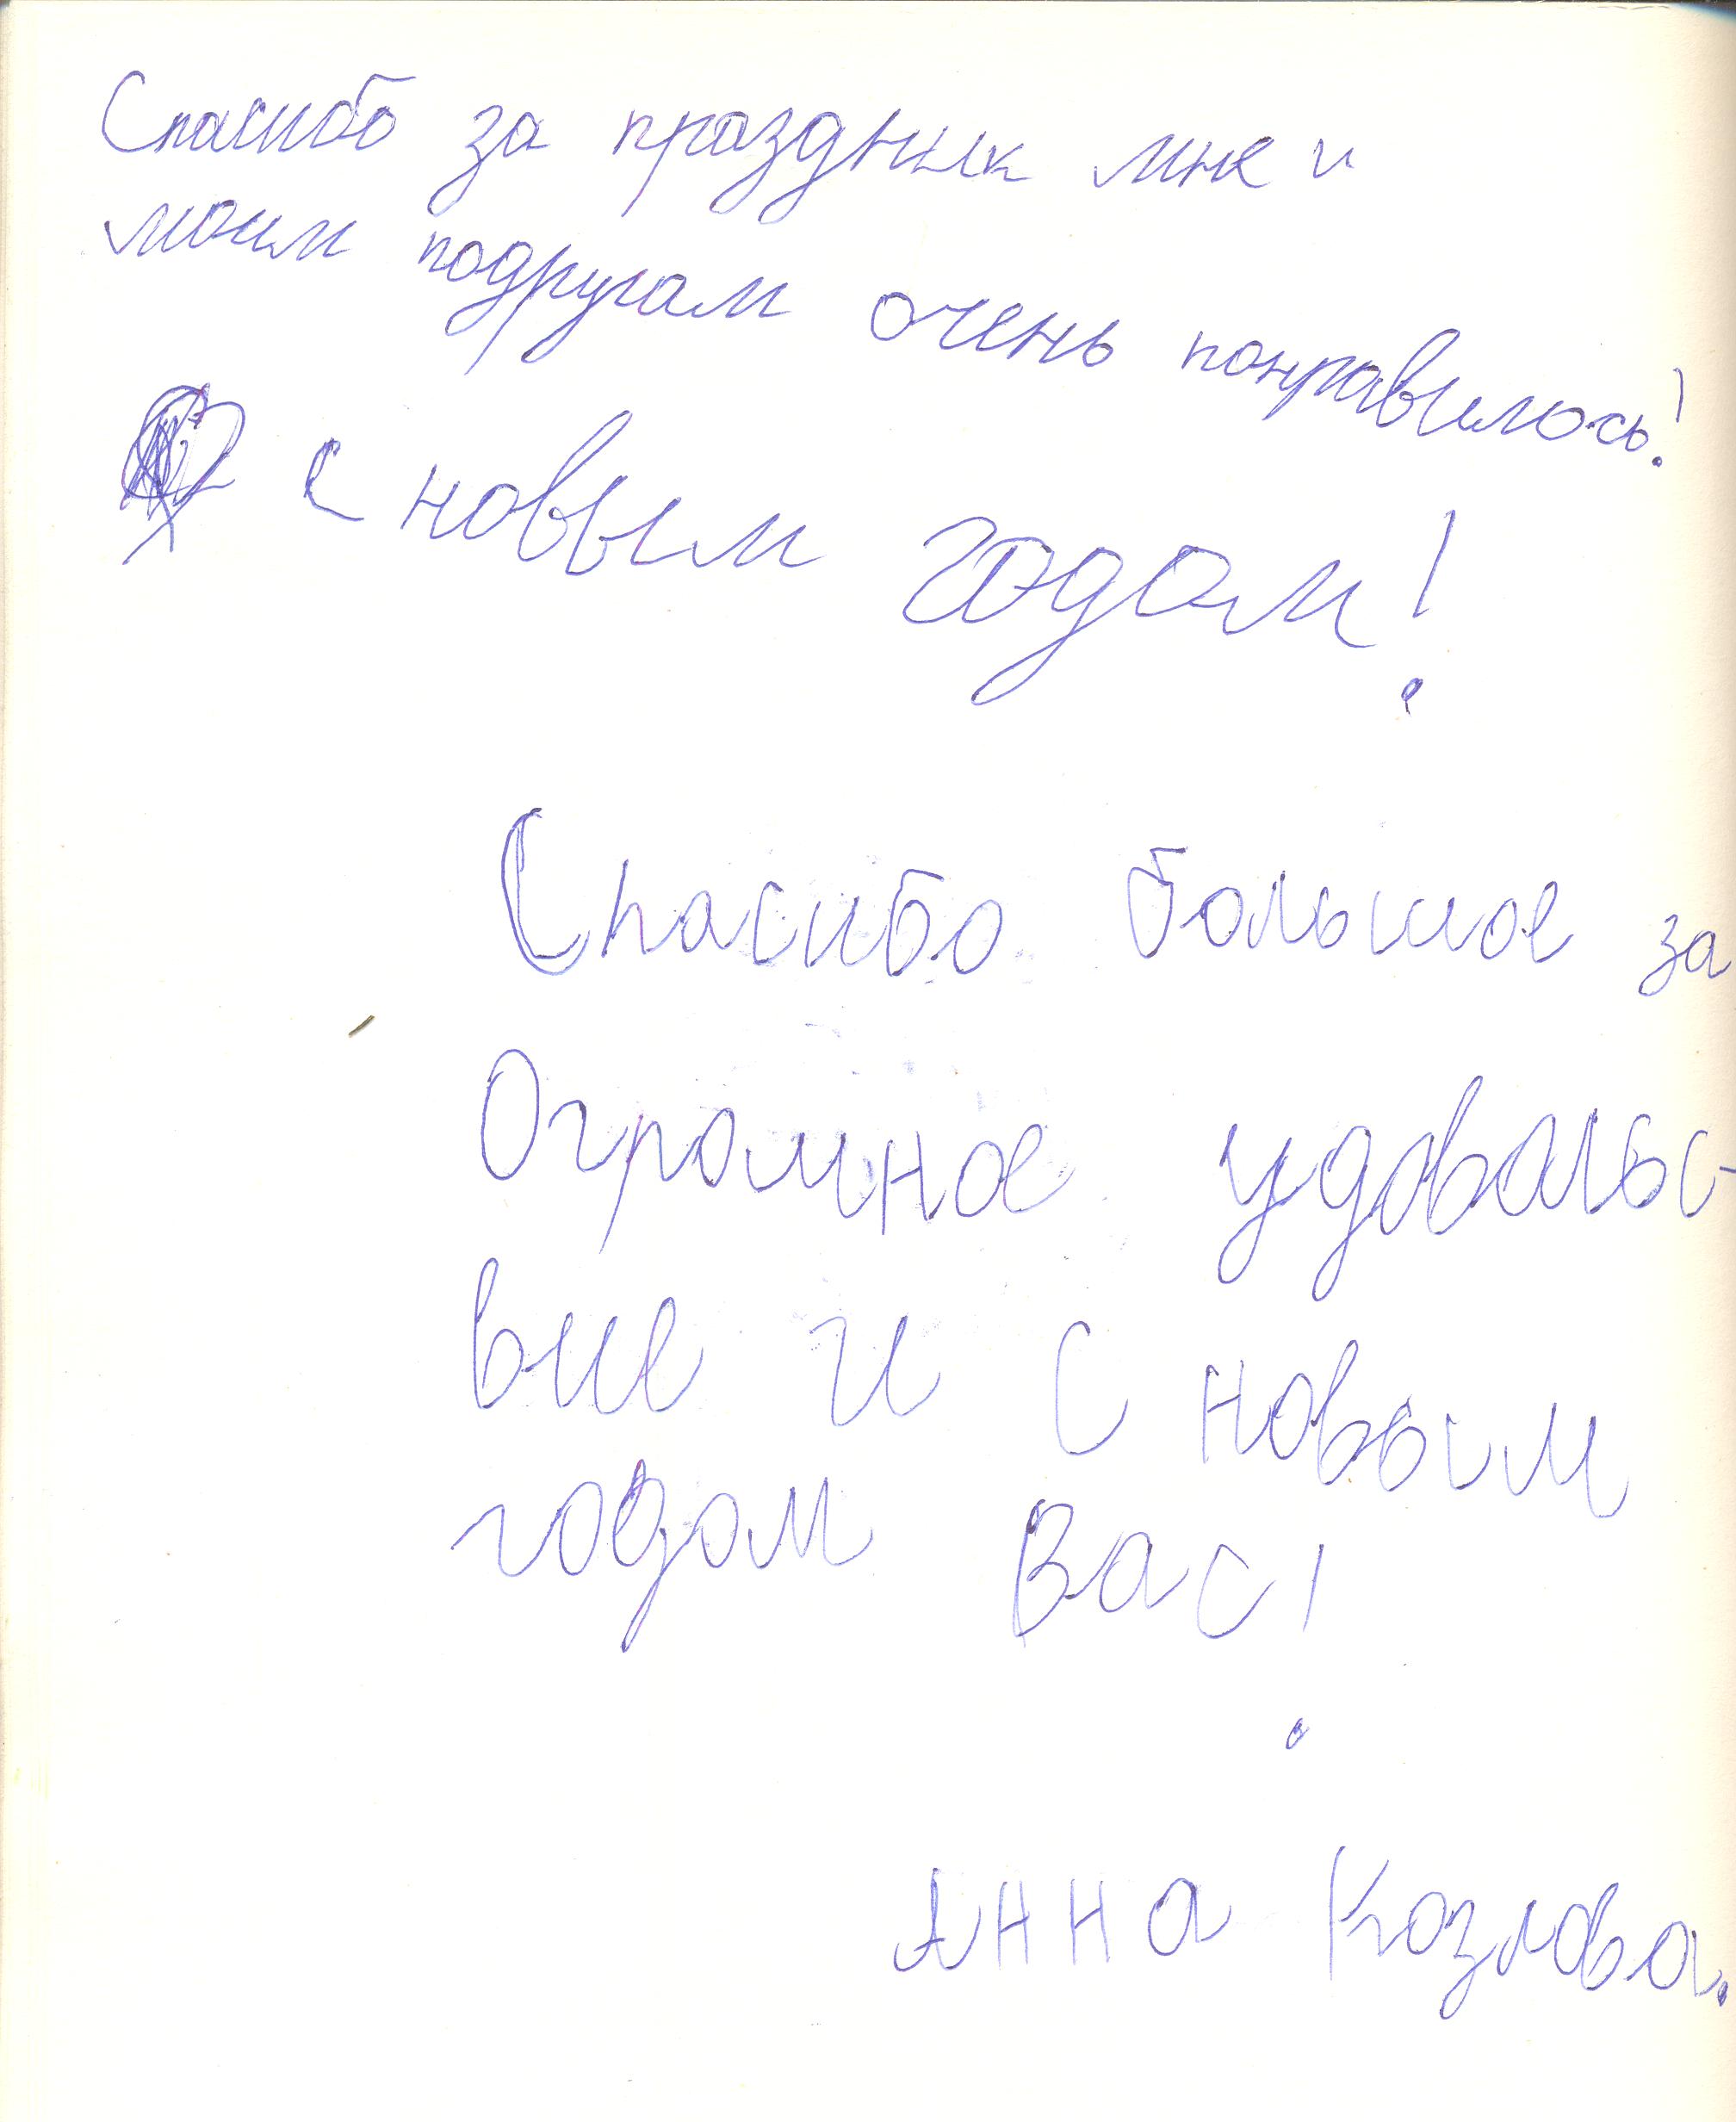 Спасибо за праздник мне и
моим подругам очень понравилось!
с новым годом!
Спасибо большое за
Огромное удовольс-
вие и с новым
годом Вас!
Анна Козлова.